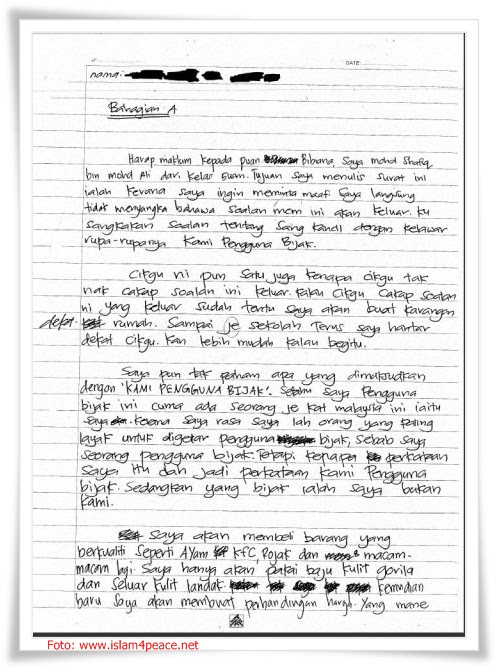 DATE:
nama:
Bahagian A
Harap maklum kepada puan Bibiana, saya mohd Shafiq
bin mohd Ali dari kelas 5 Tujuan saya menulis surat ini
ialah kerana saya ingin meminta maaf. Saya langsung
tidak menyangka bahawa soalan mcm ini akan keluar. Ku
sangkakan soalan tentang Sang kancil dengan kelawar
rupa-rupanya Kami Pengguna Bijak.
Cikgu ni pun satu juga kenapa cikgu tak
nak cakap soalan ini keluar. Kalau cikgu cakap soalan
ni yang keluar sudah tentu saya akan buat karangan
dekat rumah. Sampai je sekolah terus saya hantar
dekat cikgu. Kan lebih mudah kalau begitu.
Saya pun tak paham apa yang dimaksudkan
dengan 'KAMI PENGGUNA BIJAK'. Saya Pengguna
bijak ini cuma ada seorang je kat malaysia ini iaitu
saya. Kerana saya rasa saya lah orang yang paling
layak untuk digelar pengguna bijak, sebab saya
seorang pengguna bijak. Tetapi kenapa perkataan
saya itu dah jadi perkataan Kami Pengguna
bijak. Sedangkan yang bijak ialah saya bukan
kami.
Saya akan membeli barang yang
berkualiti seperti Ayam KFC, Rojak dan macam-
macam lagi. Saya hanya akan pakai baju kulit gorila
dan seluar kulit landak kemudian
baru saya akan membuat perbandingan harga. Yang mane
Foto: www.islam4peace.net